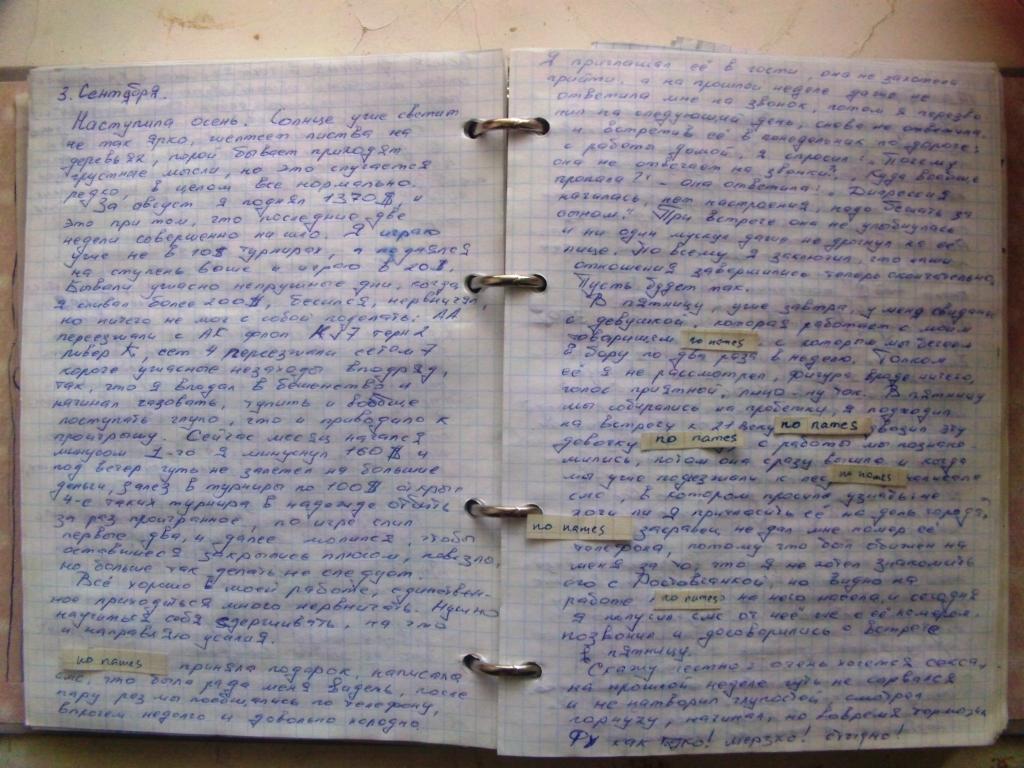 3. Сентября.
Наступила осень. Солнце уже светит
не так ярко, желтеет листва на
деревьях, порой бывает приходят
грустные мысли, но это случается
редко, в целом все нормально.
За август я поднял 1370$, и
это при том, что последние две
недели совершенно не шло. Я играю
уже не в 10$ турнирах, а поднялся
на ступень выше и играю в 20$.
Бывали ужасно непрушные дни, когда
я сливал более 200$, бесился, нервничал,
но ничего не мог с собой поделать: АА
переезжали с АК флоп К 7 терн 2
ривер К, сет 4 переезжали сетом 7
короче ужасные незаходы вподряд,
так, что я впадал в бешенство и
начинал газовать, тупить и вообще
поступать глупо, что и приводило к
проигрышу. Сейчас месяц начался
минусом 1-го я минуснул 160$ и
под вечер чуть не залетел на большие
деньги, залез в турниры по 100$ открыл
4-е таких турнира в надежде отбить
за раз проигранное, по игре слил
первые два, и далее молился, чтобы
оставшиеся закрылись плюсом, повезло,
но больше так делать не следует.
Всё хорошо в моей работе, единствен-
ное приходиться много нервничать. Нужно
научиться себя сдерживать, на что
и направляю усилия.
no names приняла подарок, написала
смс, что была рада меня видеть, после
пару раз мы пообщались по телефону,
впрочем недолго и довольно холодно
Я приглашал её в гости, она не захотела
прийти, а на прошлой неделе даже не
ответила мне на звонок, потом я перезво
нил на следующий день, снова не ответила.
и встретив её в понедельник по дороге
с работы домой, я спросил: "Почему
она не отвечает на звонки? Куда вообще
пропала?" - она ответила: "Дипрессия
началась, нет настроения, надо бежать за
сыном." При встрече она не улыбнулась
и ни один мускул даже не дрогнул на её
лице. По всему я заключил, что наши
отношения завершились теперь окончательно,
Пусть будет так.
В пятницу, уже завтра, у меня свидание
с девушкой, которая работает с моим
товарищем no names с которым мы бегаем
в бору по два раза в неделю. Толком
её я не рассмотрел, фигура вроде ничего,
голос приятный, лицо - ну так. В пятницу
мы собирались на пробежку, я подходил
на встречу к 21 веку no names звал эту
девочку no names с работы мы познако-
мились, потом она сразу вошла и когда
мы уже подъезжали к лесу no names написала
смс, в котором просила узнать: не
хочу ли я пригласить её на день города,
no names засранец не дал мне номер её
телефона, потому что был обижен на
меня за то, что я не хотел знакомить
его с Ростовчанкой, но видно на
работе no names на него насела, и сегодня
я получил смс от неё же с её номером.
позвонил и договорились о встрече
в пятницу.
Скажу честно: очень хочется секса,
на прошлой неделе чуть не сорвался
и не натворил глупостей, смотрел
порнуху, начинал, но вовремя тормозил
Фу как мерзко! стыдно!